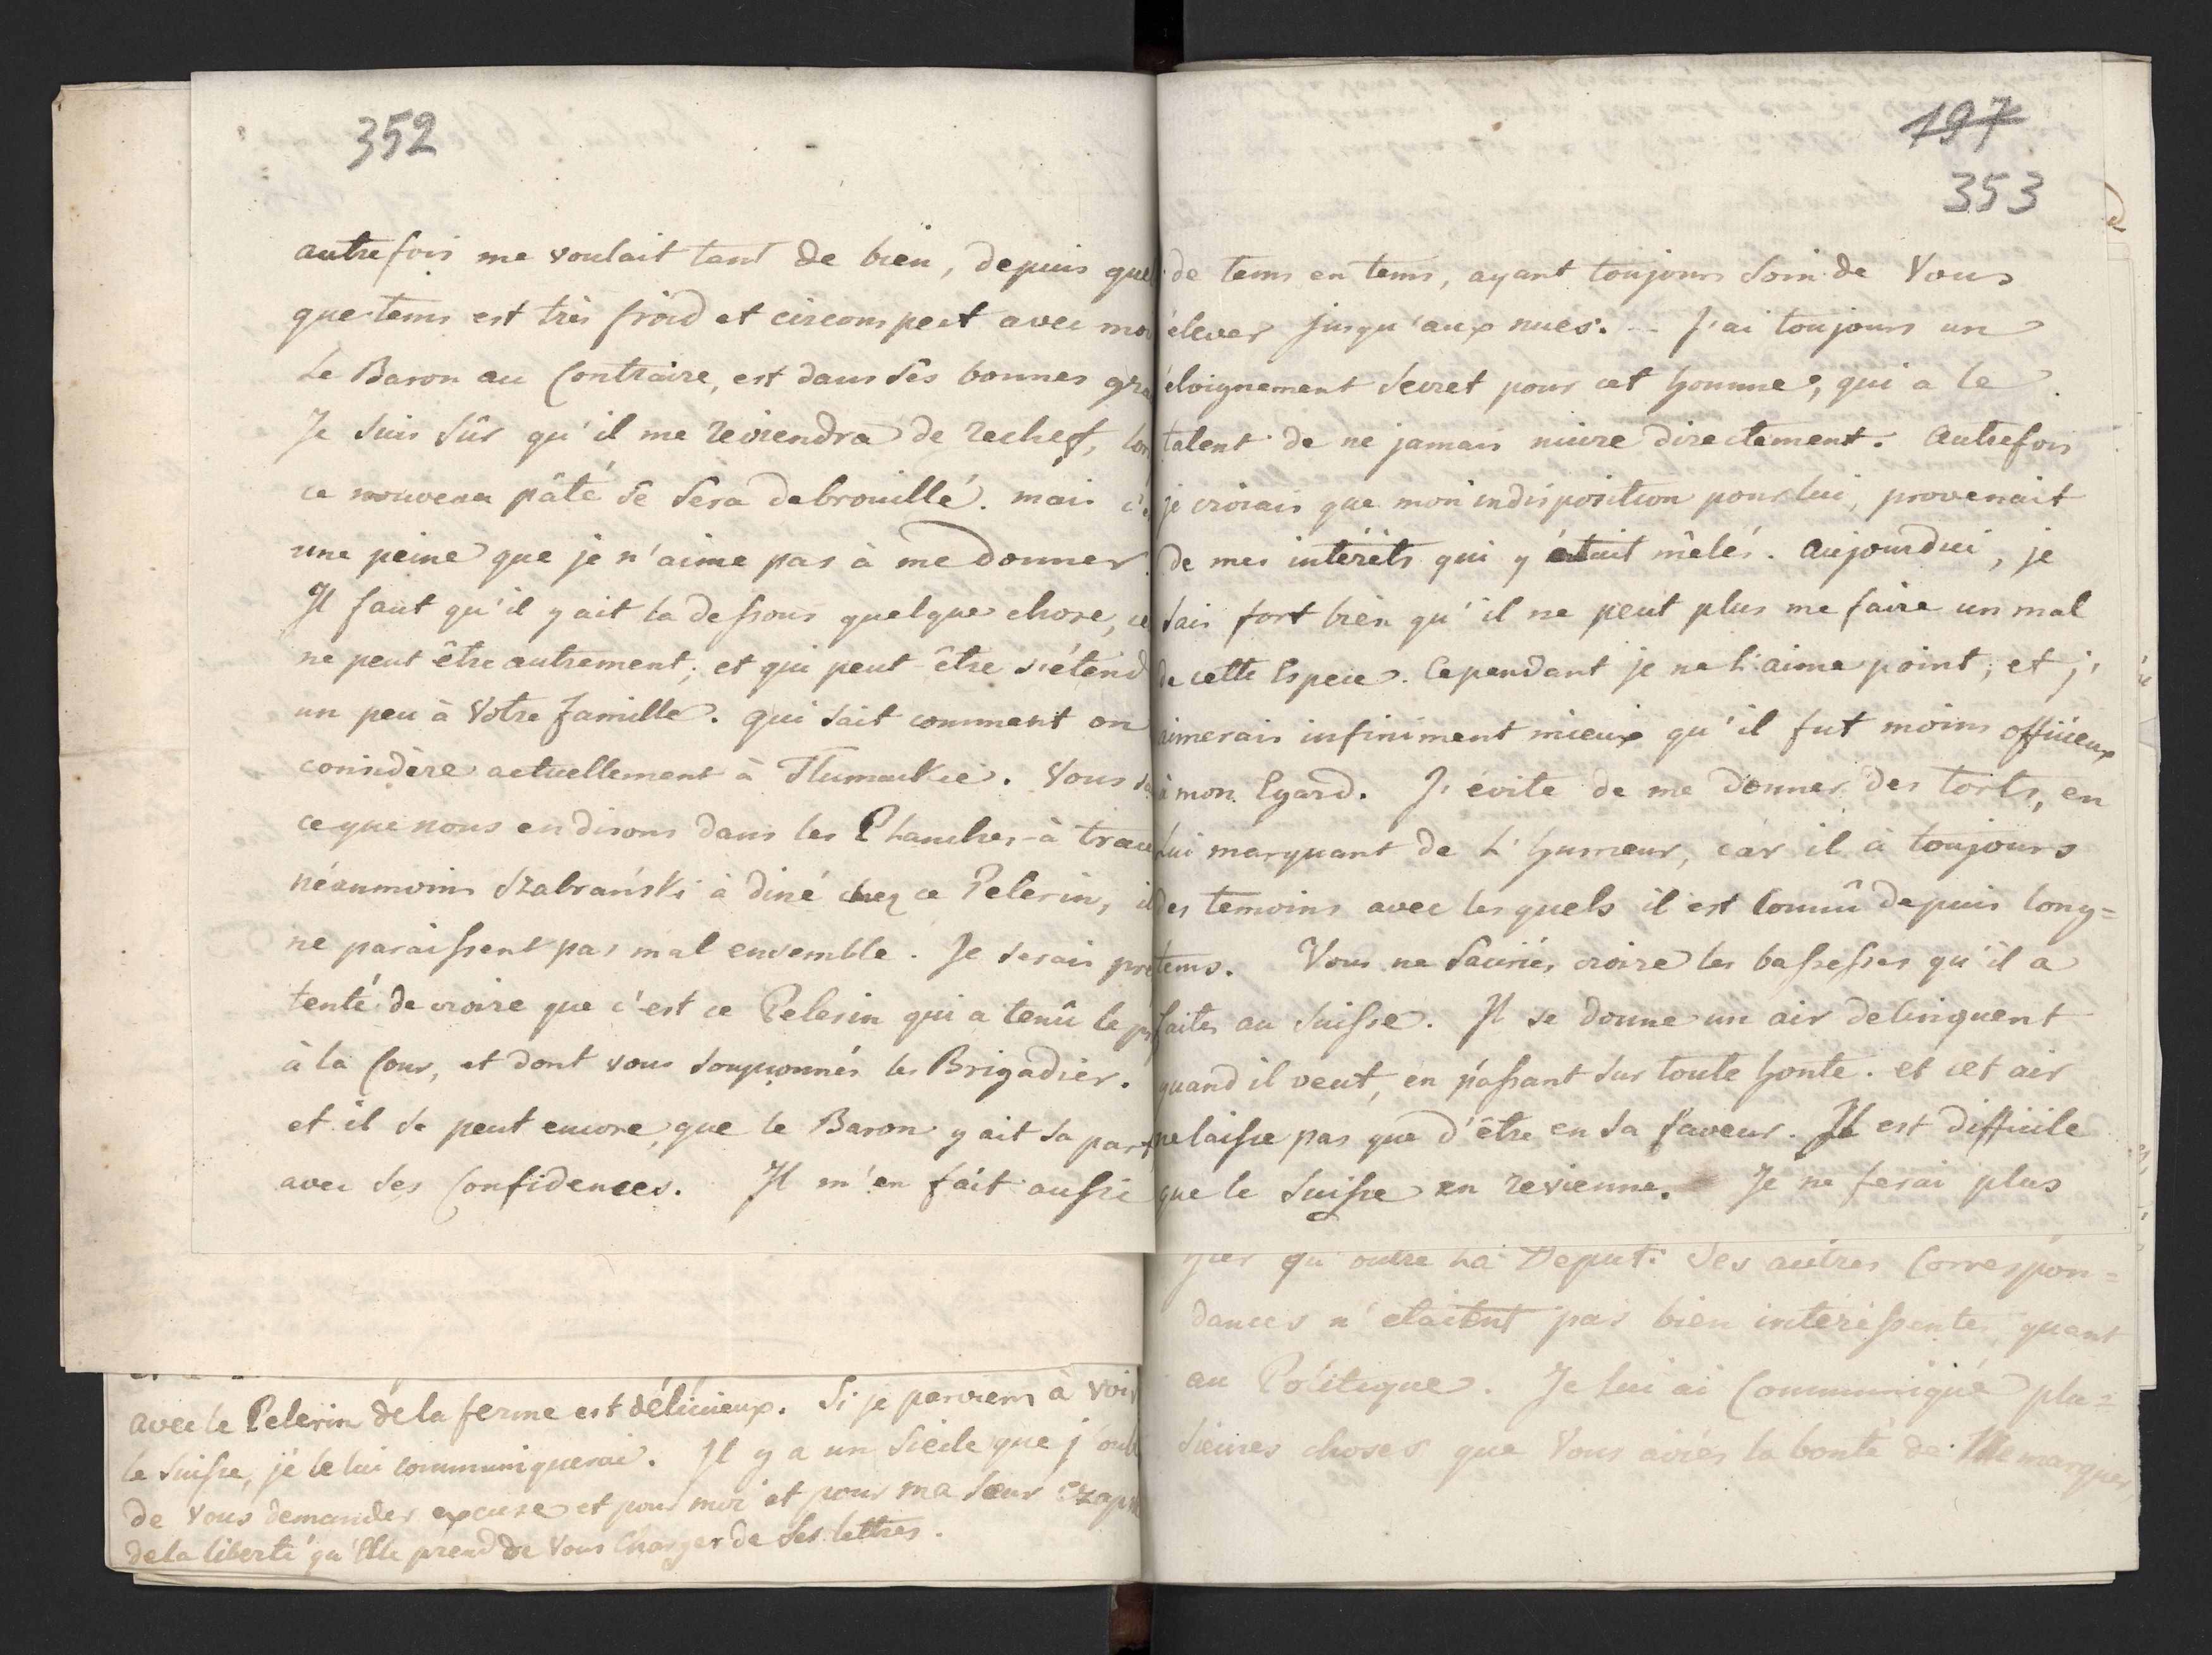 352
autrefois me voulait tant de bien, depuis quel
que tems est très froid et circonspect avec moi
Le Baron au Contraire, est dans ses bonnes gra
Je suis sûr qu'il me reviendra de rechef, lor
ce nouveau pâté se sera debrouillé. mais c'e
une peine que je n'aime pas à me donner.
Il faut qu'il y ait la dessous quelque chose, ce
ne peut être autrement; et qui peut-être s'étend
un peu à Votre famille. qui sait comment on
considère actuellement à Tlumackie. Vous
ce que nous en disons dans les Planches à trace
néanmoins Szabrański à diné chez ce Pelerin, il
ne paraissent pas mal ensemble. Je serais pre
tenté de croire que c'est ce Pelerin qui a tenû le
à la Cour, et dont vous soupçonnés les Brigadier.
et il se peut encore, que le Baron y ait sa part
avec ses Confidences. Il m'en fait aussi
avec le Pelerin de la ferme est délicieux. Si je parviens à voir
le Suisse, je le lui communiquerai. Il y a un siecle que j'oubl
de Vous demander excuse et pour moi et pour ma soeur
de la liberté qu'Elle prend de Vous Charger de ses lettres.
197
353
de tems en tems, ayant toujours soin de Vous
élever jusqu'aux nues. -- J'ai toujours un
éloignement secret pour cet homme, qui a le
talent de ne jamais nuire directement. Autrefois
je croiais que mon indisposition pour lui, provenait
de mes intérêts qui y étuit mêlés. Aujourdui, je
sais fort bien qu'il ne peut plus me faire un mal
de cette Espece. Cependant je ne l'aime point; et j'
aimerais infiniment mieux qu'il fut moins officieux
à mon Egard. J'évite de me donner des torts, en
Lui marquant de L'humeur, car il à toujours
des temoins avec lesquels il est connû depuis long=
tems. Vous ne sauriés croire les bassesses qu'il a
faites au Suisse. Il se donne un air delinquent
quand il veut, en passant sur toute honte. et cet air
ne laisse pas que d'être en sa faveur. Il est difficile
que le Suisse en revienne. Je ne ferai plus
hier qu'outre La Deput: ses autres Correspon=
dances n'etaient pas bien interessentes, quant
au Politique. Je lui ai Communiqué plu=
sieures choses que Vous aviés la bonté de Me marquer,